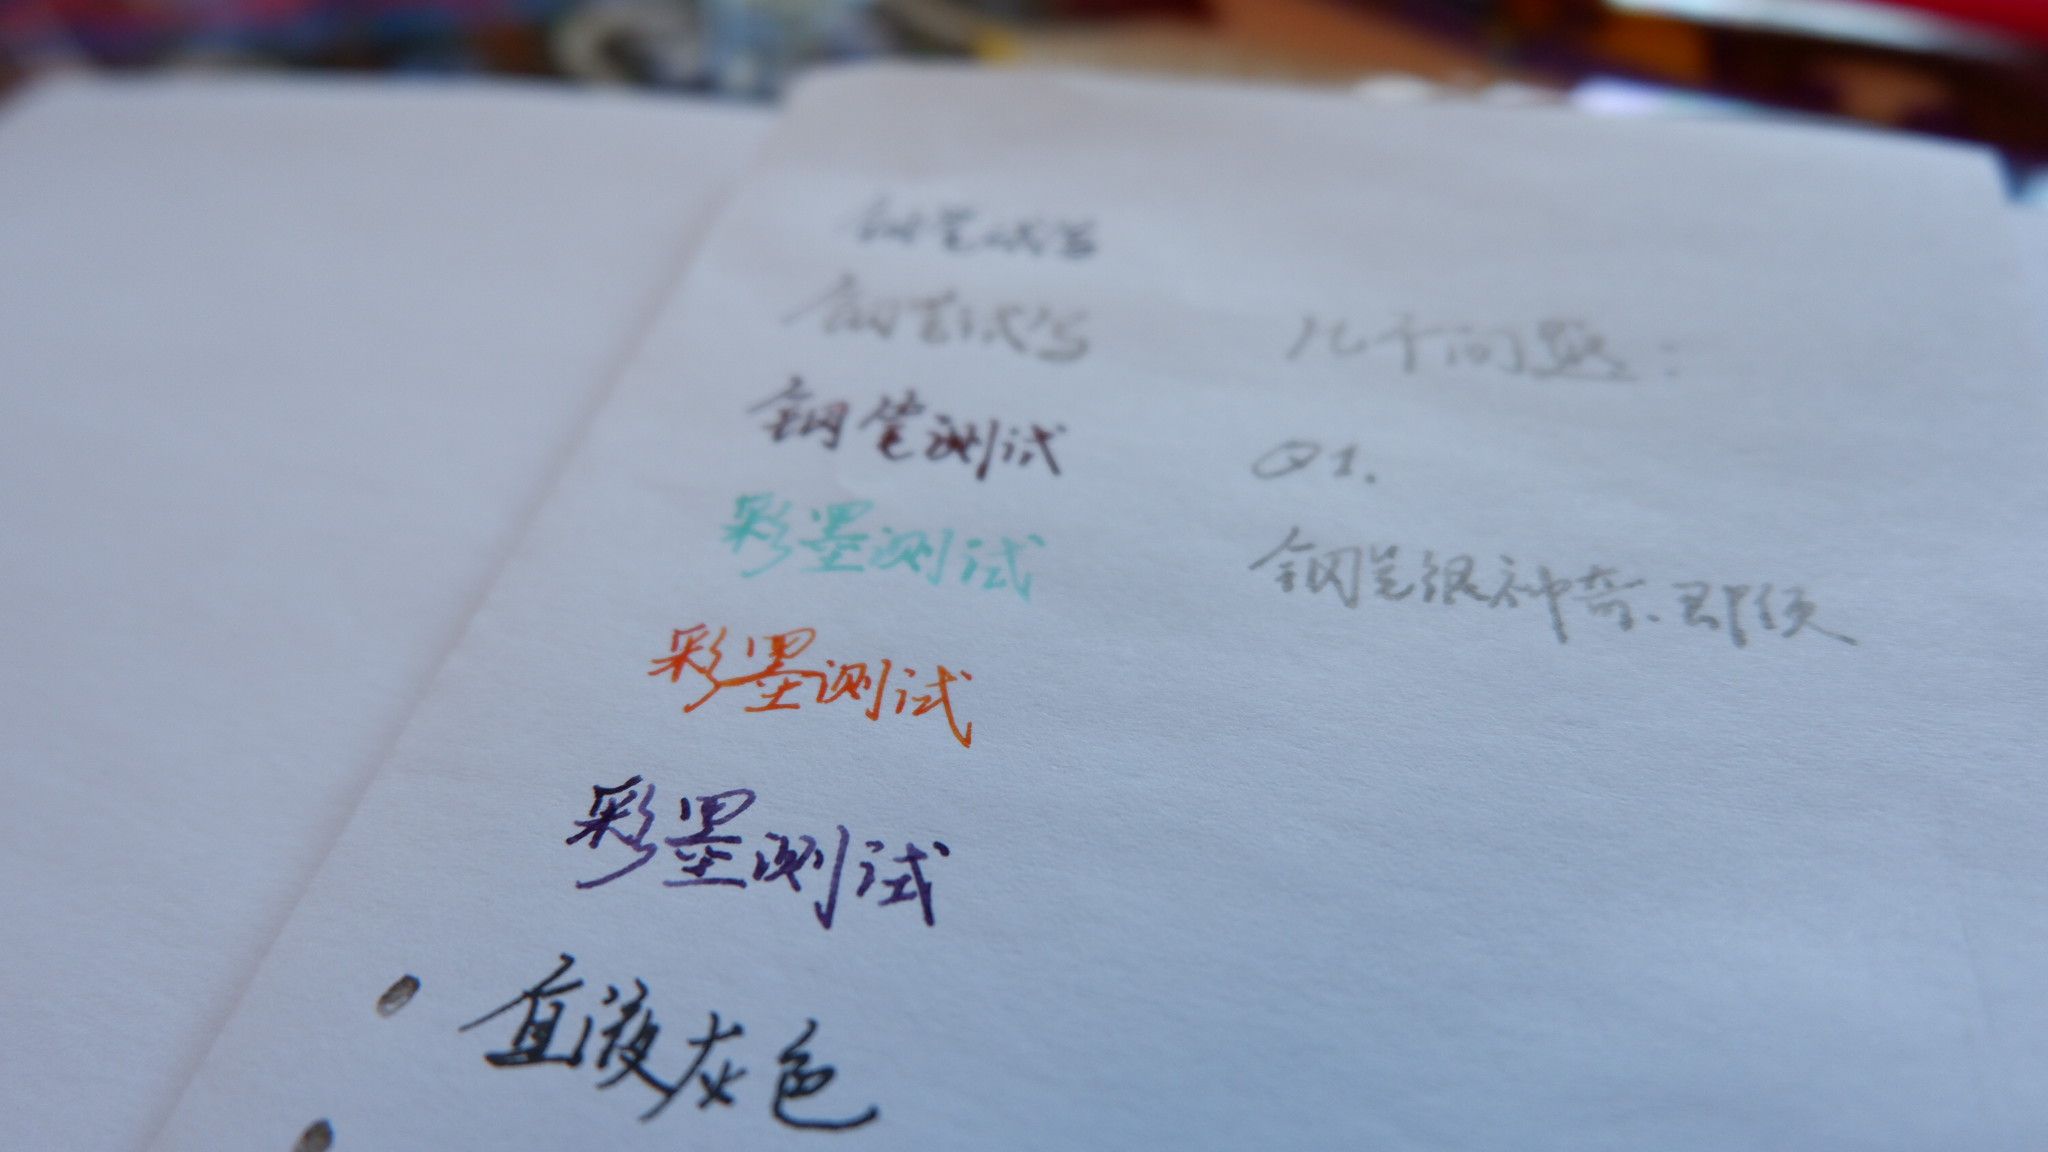 钢笔试写
钢笔试写
钢笔测试
彩墨测试
彩墨测试
彩墨测试
直液灰色
几个问题：
Q1.
钢笔很神奇、即便